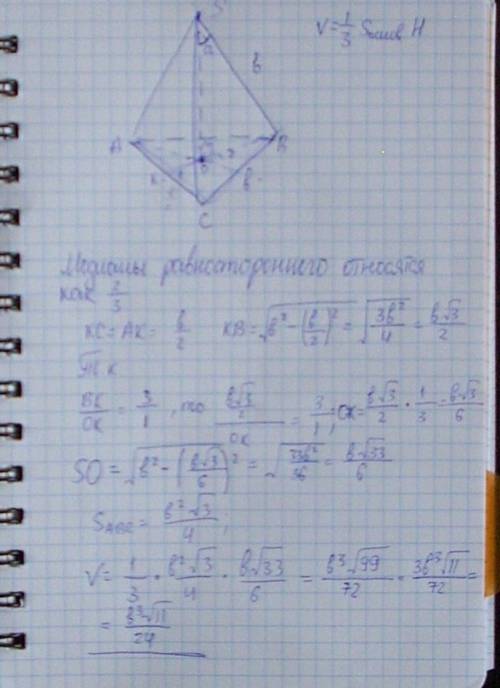 S
V = 1/3 Sоснов H
в
A B
O
в
K
C
Медианы равностороннего относятся
как 2/3
KC = AK = в/2 KB = √(в² - (в/2)²) = √(3в²/4) = в√3/2
т.к
BK/OK = 3/1, то (в√3/2)/OK = 3/1; OK = в√3/2 · 1/3 = в√3/6
SO = √(в² - (в√3/6)²) = √(33в²/36) = в√33/6
S ABC = в²√3/4;
V = 1/3 · в²√3/4 · в√33/6 = в³√99/72 = 3в³√11/72 =
= в³√11/24